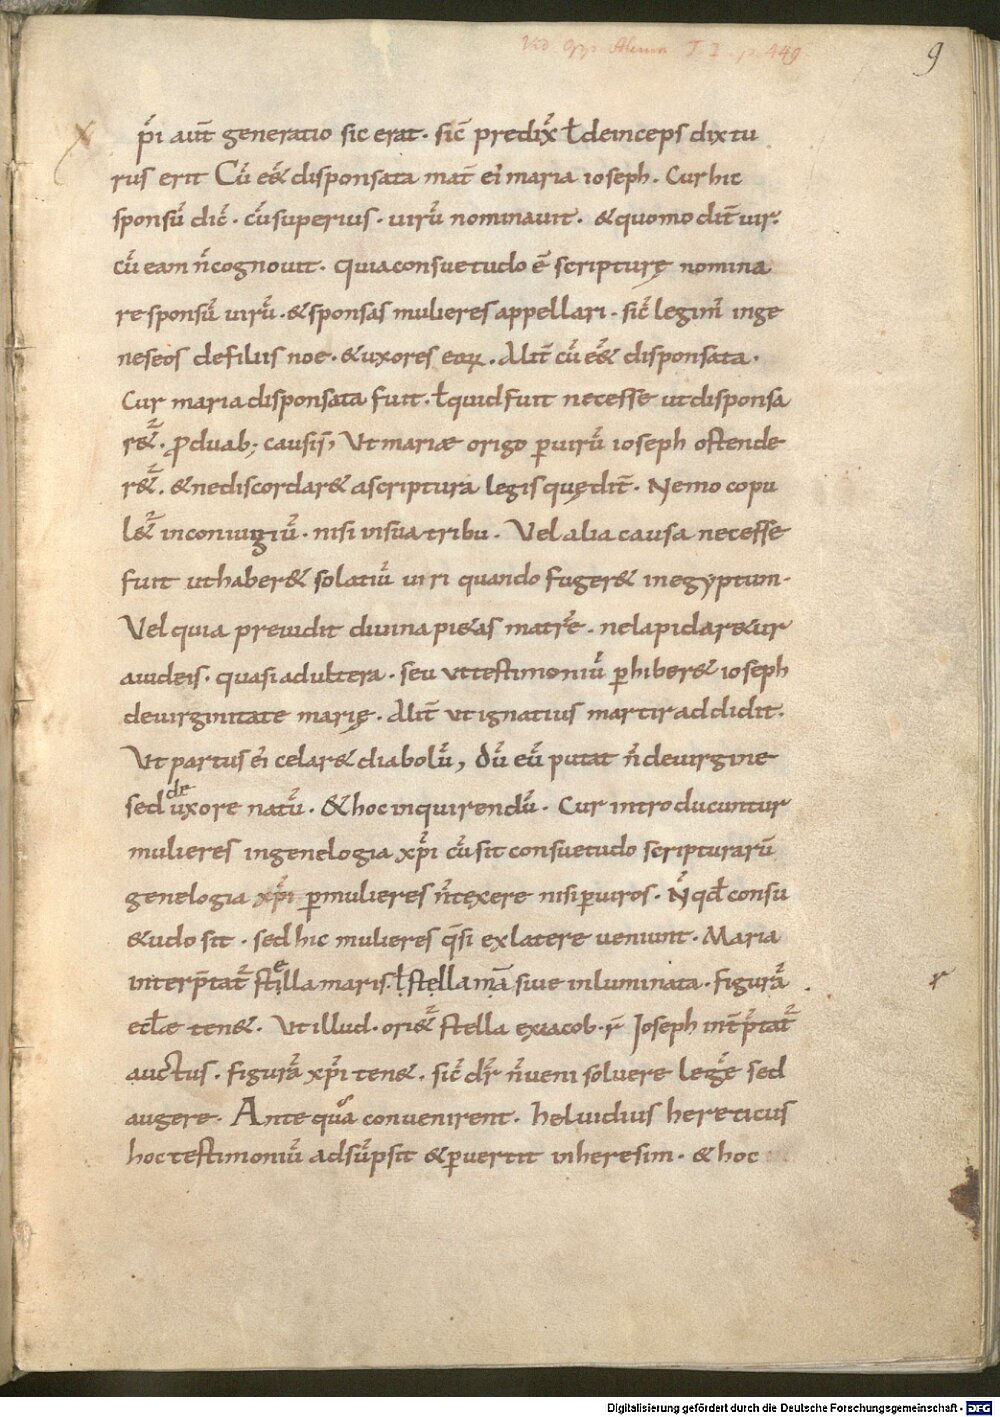 9
xp̄i aut̄ generatio sic erat. sic̄ predix̄ ł deinceps dixtu
rus erit Cū ēē& disponsata mat̄ ei maria ioseph. Cur hic
sponsū dic̄. cū superius. uirū nominauit. & quomodo dit̄ uir.
cū eam n̄ cognouit. quia consuetudo ē scripturę nomina
re sponsū uirū. & sponsas mulieres appellari. sic̄ legim̄ in ge
neseos de filiis noe. & uxores eoꝝ. Alit̄ cū ēē& disponsata.
Cur maria disponsata fuit. ł quid fuit necesse ut disponsa
r&̄. ꝓ duab; causis, Ut mariæ origo ꝑ uirū ioseph ostende
r&̄. & ne discordar& a scriptura legis quę dit̄. Nemo copu
l&̄ in coniungiū. nisi in sua tribu. Vel alia causa necesse
fuit ut haber& solatiū uiri quando fuger& in egyptum.
Vel quia preuidit diuina pi&as matrē. ne lapidar&ur
a iudeis. quasi adultera. seu ut testimoniū ꝑhiber& ioseph
de uirginitate marię. Alit̄ ut ignatius martir addidit.
Ut partus ei celar& diabolū, dū eū putat n̄ de uirgine
sed de uxore natū. & hoc inquirendū. Cur introducuntur
mulieres in genelogia xp̄i cū sit consuetudo scripturarū
genelogia xp̄i ꝑ mulieres n̄ texere nisi ꝑ uiros. N̄ qđ consu
&udo sit. sed hic mulieres q̄si ex latere ueniunt. Maria
interp̄tat̄ stella maris. ł stella mā siue inluminata. figurā
eccłæ ten&. Ut illud. ori&̄ stella ex iacob. r̄ Ioseph int̄p̄tat̄
auctus. figurā xp̄i ten&. sic̄ dr̄ n̄ ueni soluere legē sed
augere. Ante quā conuenirent. heluidius hereticus
hoc testimoniū adsūpsit & ꝑuertit in heresim. & hoc
Digitalisierung gefördert durch die Deutsche Forschungsgemeinschaft - DFG